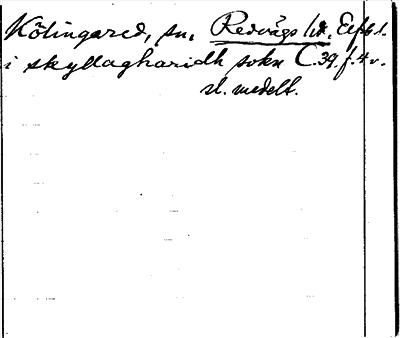 Kölingared, sn, Redvägs hd, Elfsb l.
i skyllagharidh sokn C. 39. f. 4 v.
sl. medelt.